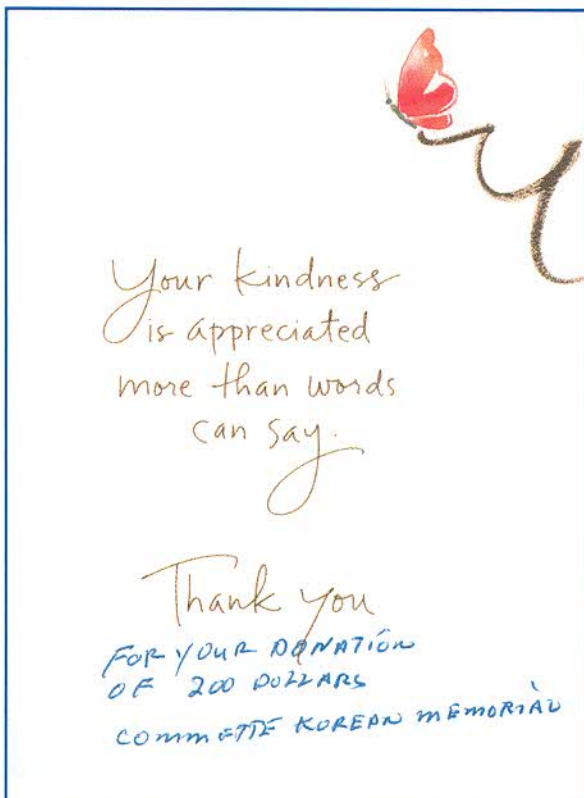 Your kindness
is appreciated
more than words
can say.
Thank you
FOR YOUR DONATION
OF 200 DOLLARS
COMMETTE KOREAN MEMORIAL